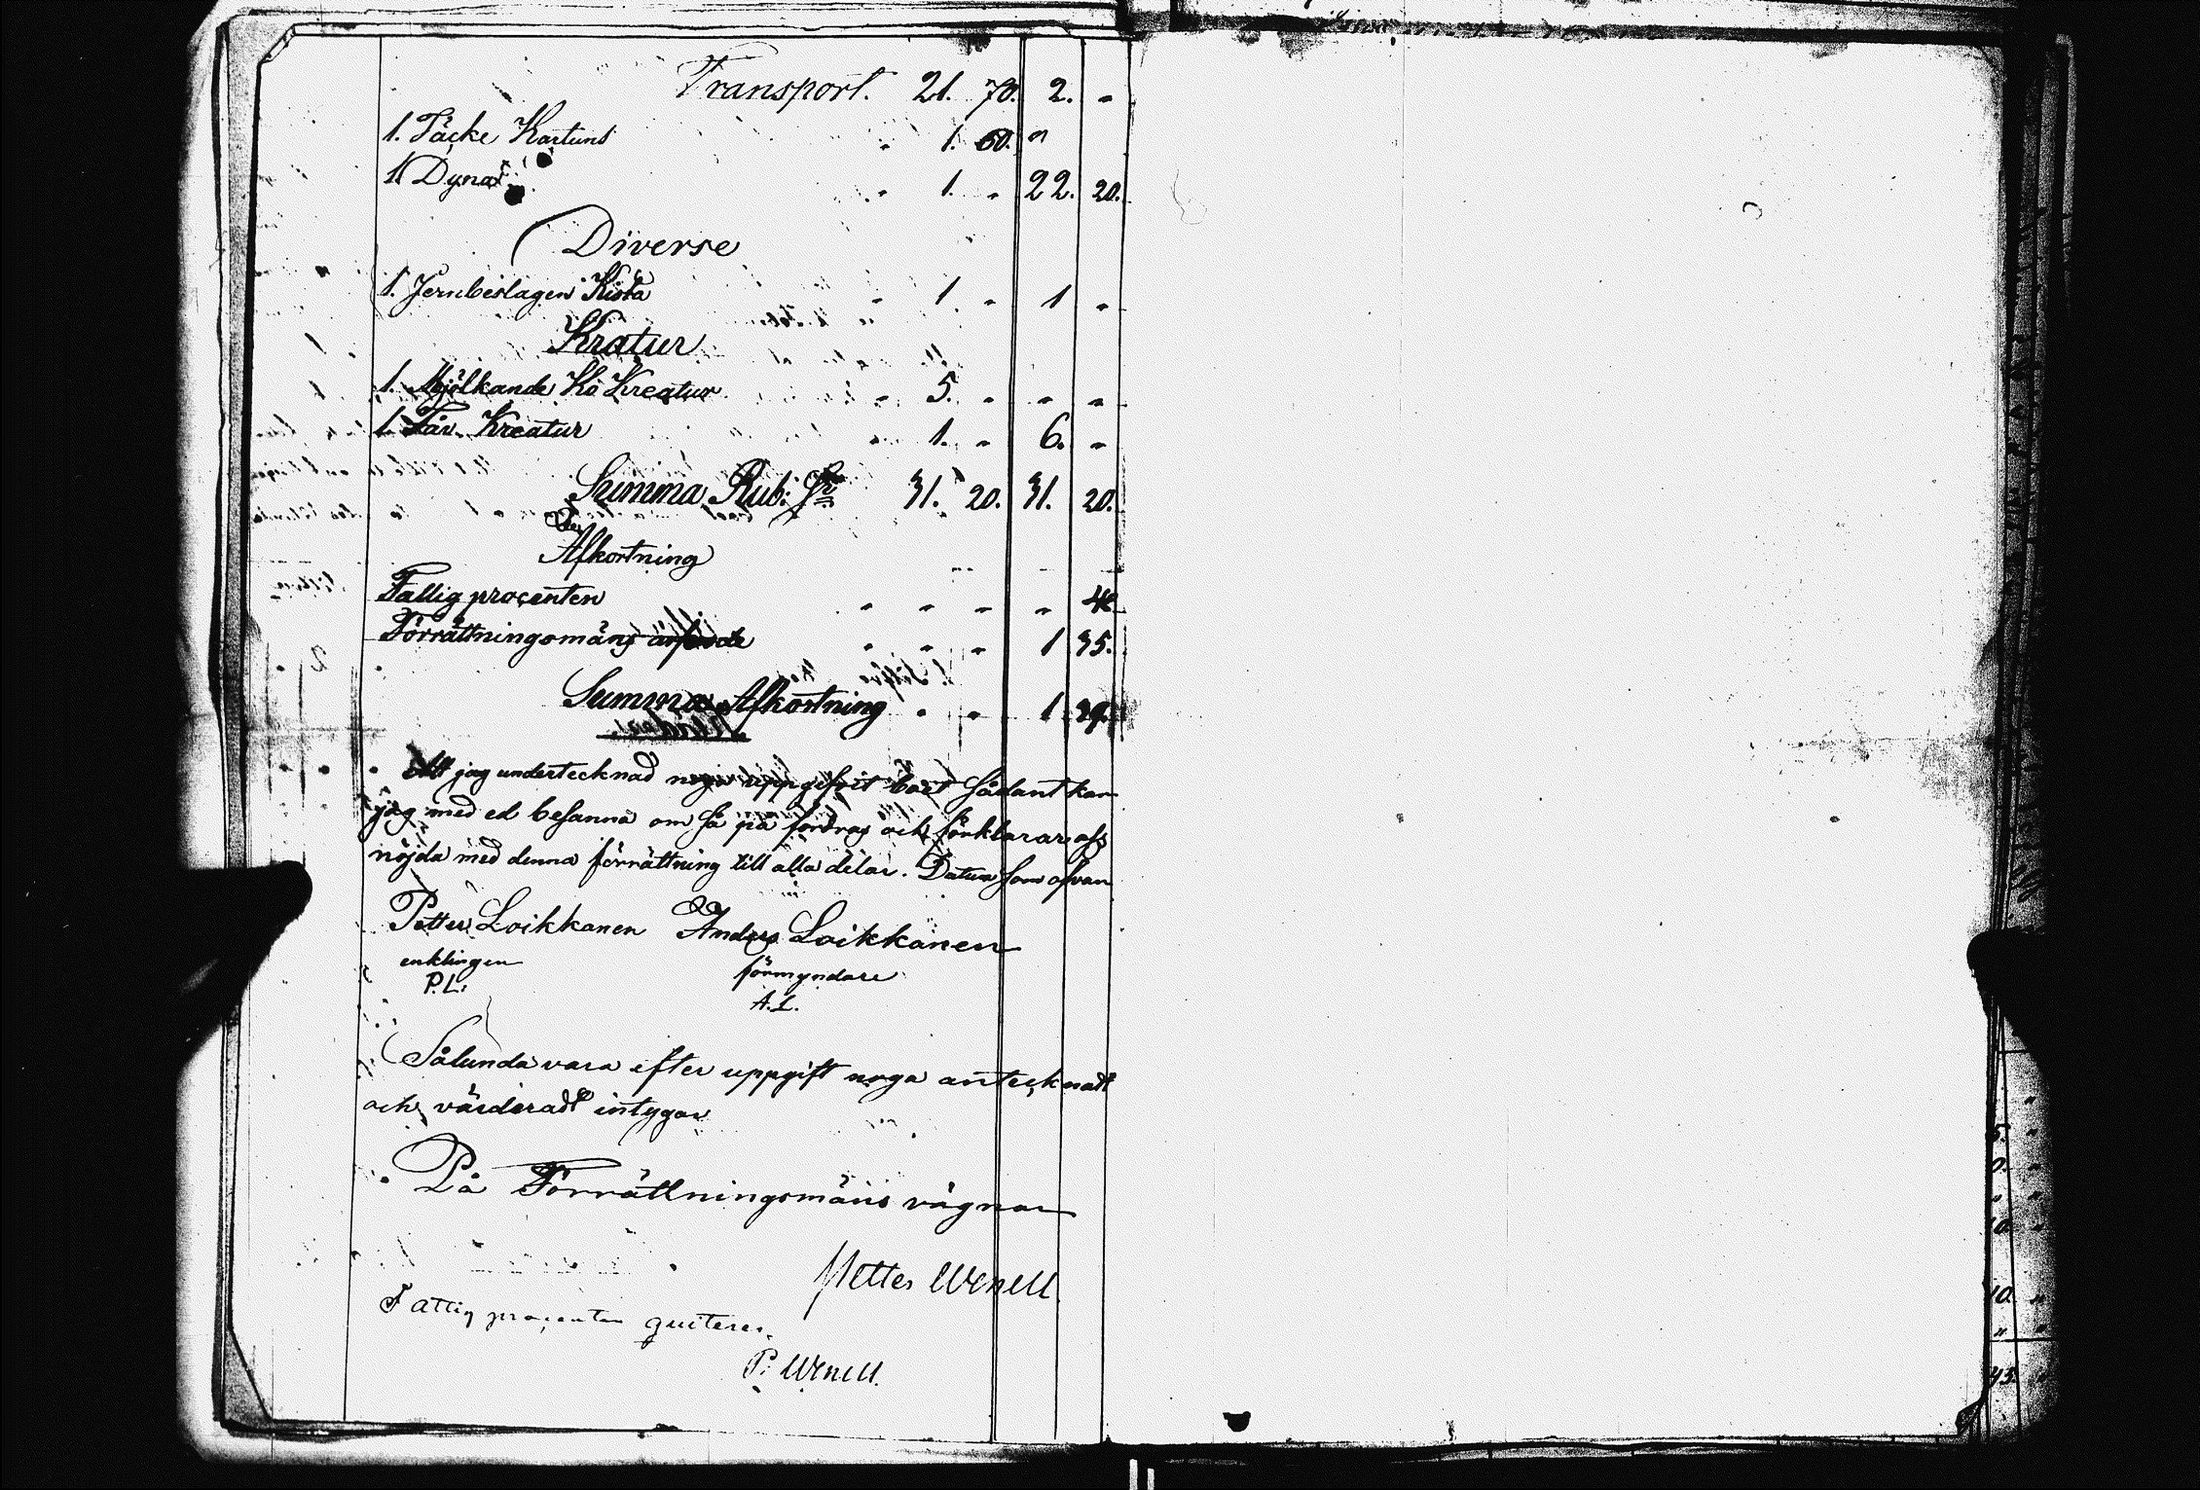 Transport. 21. 70. 2. -
1. Täcke Kartuns - 1. 50. "
1. Dyna - 1. - 22. 20.
Diverse
1. Jernbeslagen Kista - 1. - 1 -
Kratur
1. Mjölkande Ko Kreatur - 5. - - -
1. Får Kreatur 1. - 6. -
Summa Rub: Sr 31. 20. 31. 20.
Afkortning
Fattig procenten - - - - 4
Förrättningsmäns arfvode - - - 1 35.
Summa Afkortning - - 1 39.
Att jag undertecknad noga uppgifvit boet sådant kan
jag med ed besanna om så på fordras och förklarar oss
nöjda med denna förrättning till alla delar. Datum som ofvan
Petter Loikkanen Anders Loikkanen
enklingen förmyndare
P.L. A.L.
Sålunda vara efter uppgift noga antecknadt
och värderadt intygar
På Förrättningsmäns vägnar
Petter Wenell.
Fattig procenten quiteras.
P. Wenell.